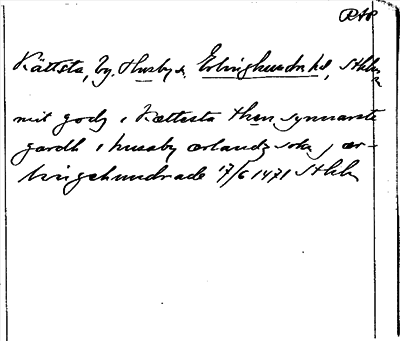 RAP
Kättsta, by, Husby s. Erlinghundra hd, Sthlm
mit godz i Kættesta then synnarste
gardh i husaby ærlandz sokn j ær-
lingehundrade 17/6 1471 Sthlm